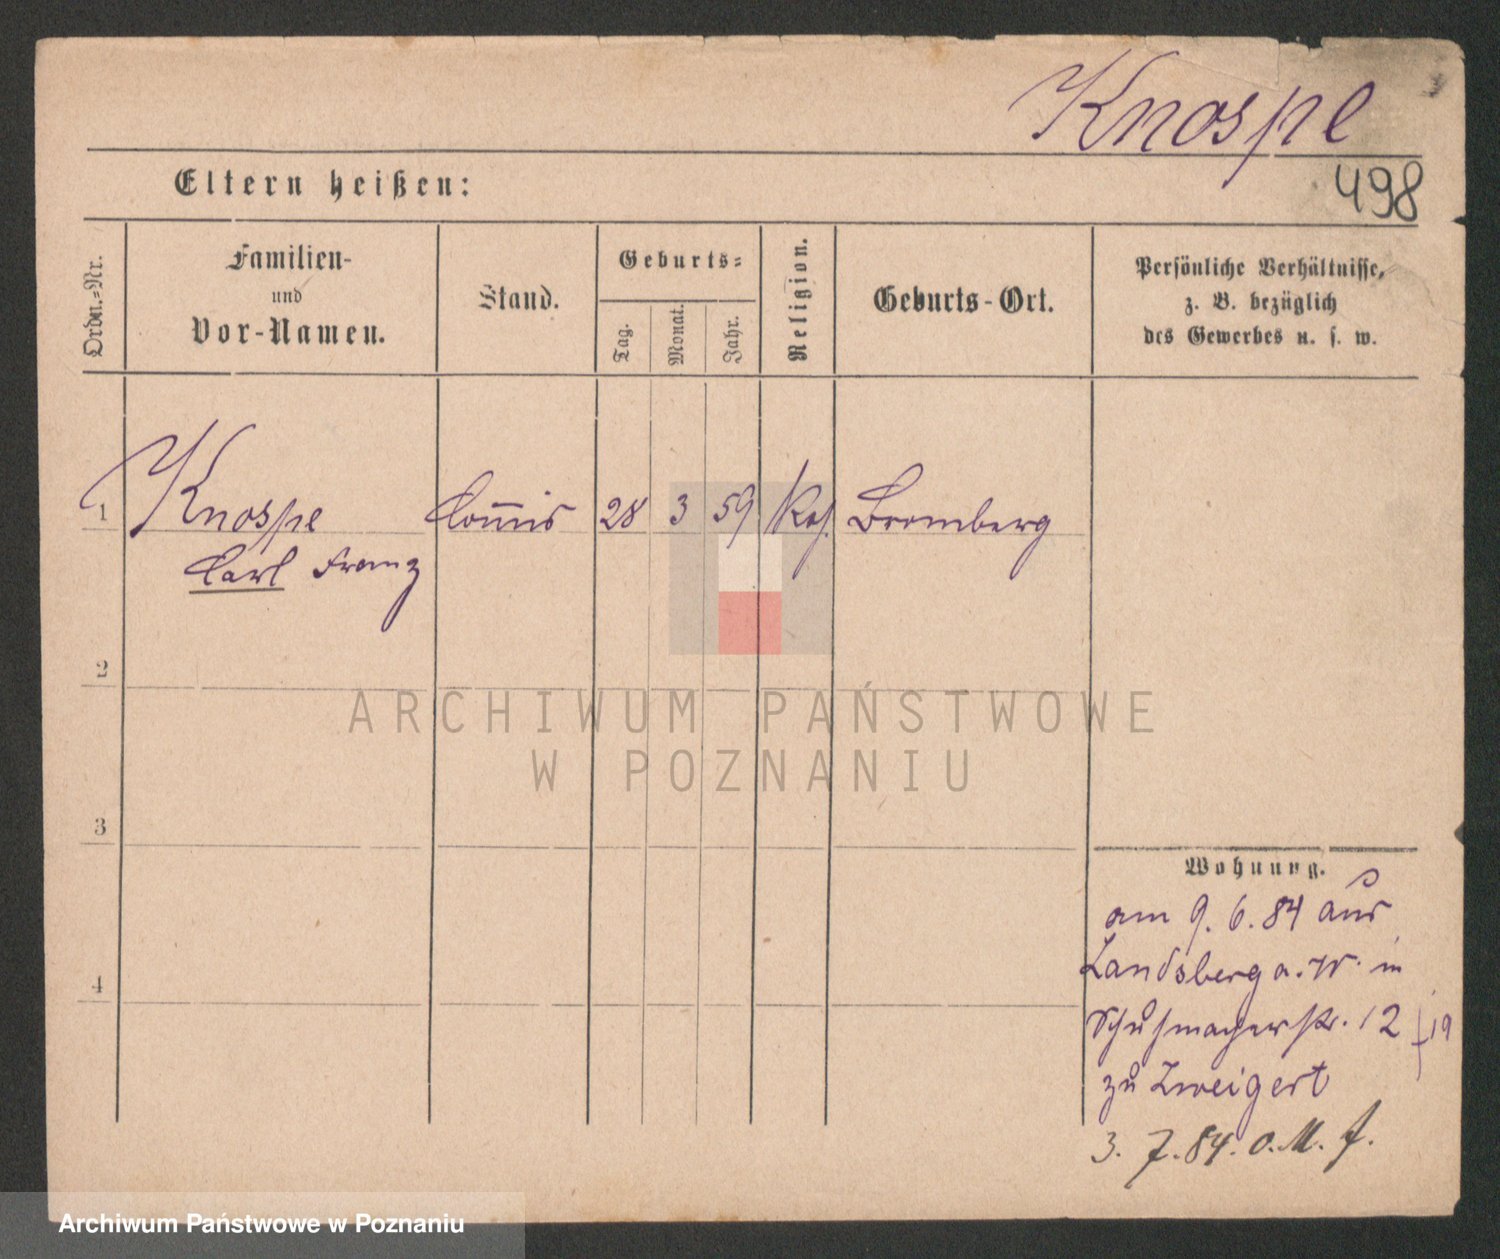 Knospe
Eltern heißen:
498
Ordn.=Nr.
Familien-
und
Vor-Namen.
Stand.
Geburts=
Tag.
Monat.
Jahr.
Religion.
Geburts-Ort.
Persönliche Verhältnisse,
z. B. bezüglich
des Gewerbes u. s. w.
1 Knospe Com̄is 28 3 59 Bromberg
Carl Franz
2
ARCHIWUM PAŃSTWOWE
W POZNANIU
3
Wohnung.
am 9. 6. 84 aus
Landsberg a. W. in
4
Schuhmacherstr. 12 /19
zu Zweigert
3. 7. 84. o. M. f.
Archiwum Państwowe w Poznaniu